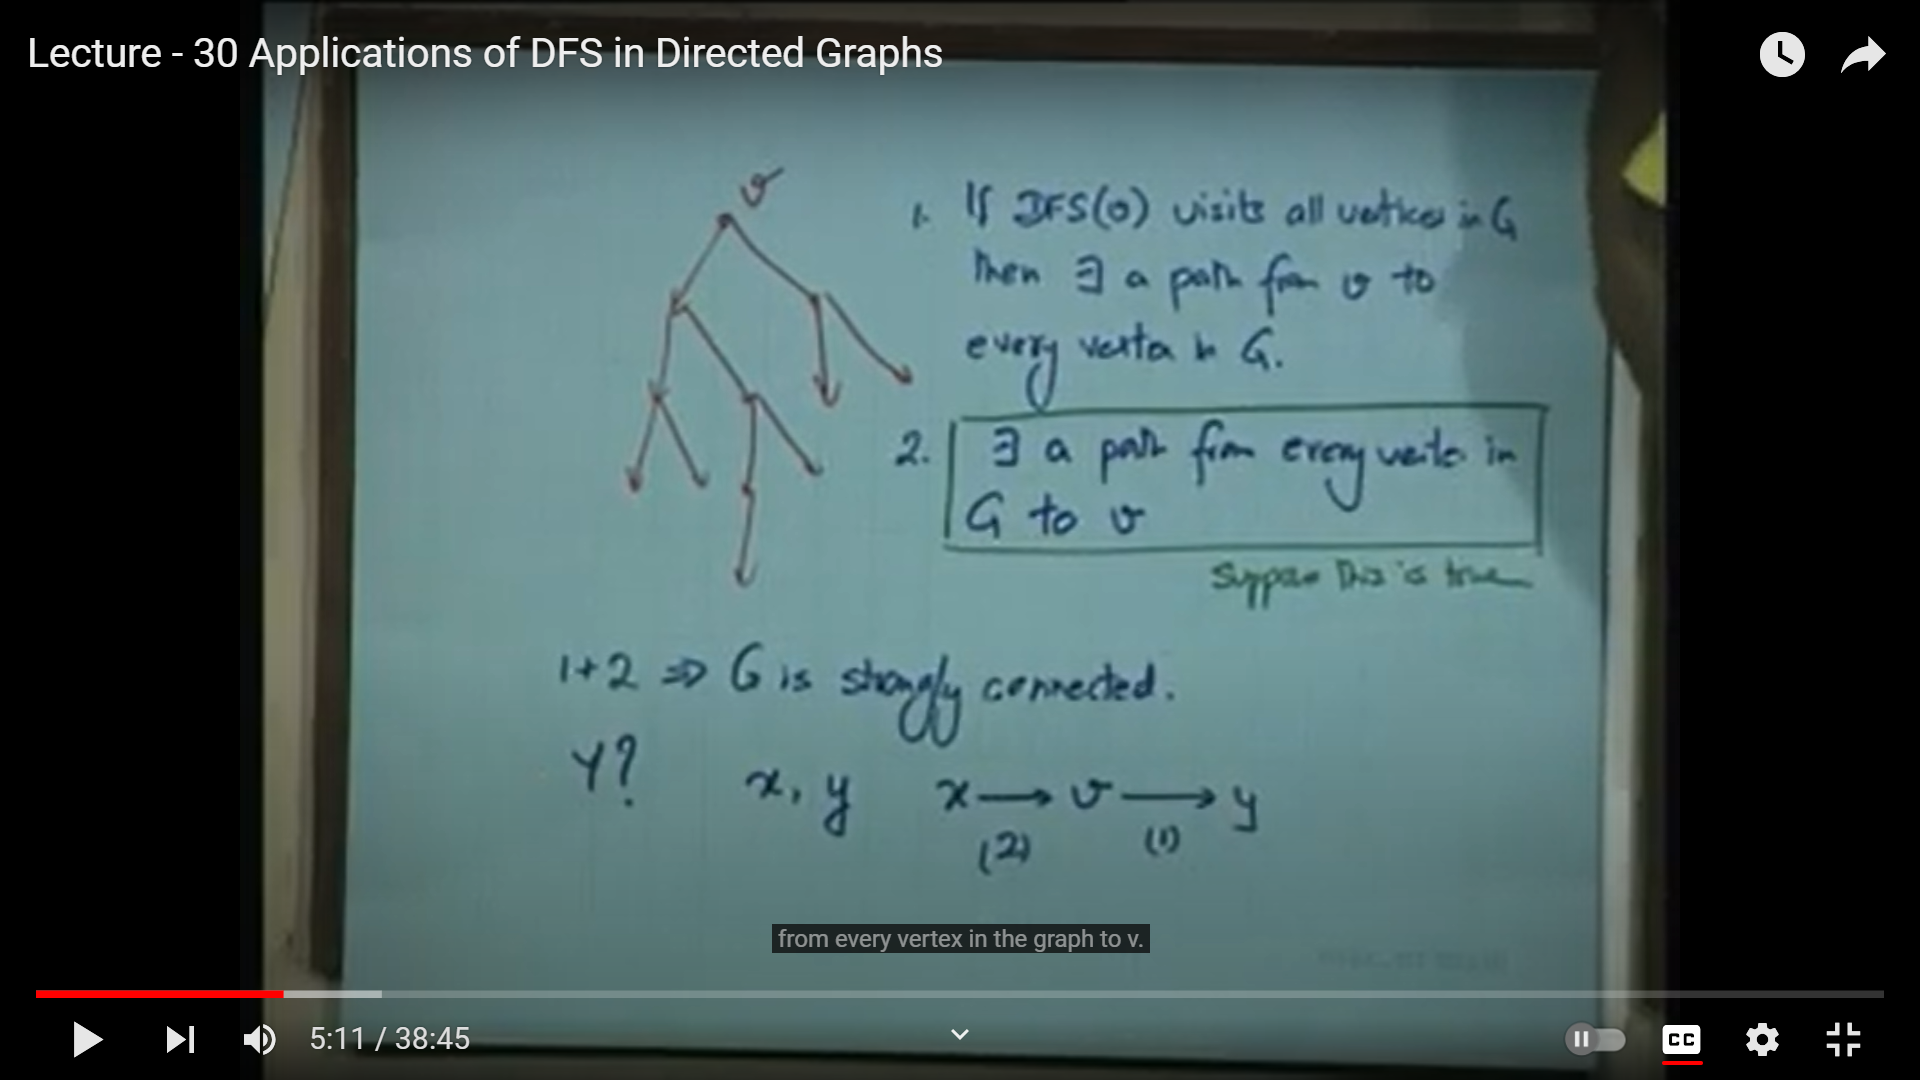 Lecture - 30 Applications of DFS in Directed Graphs
v
1. If DFS(v) visits all vertices in G
then ∃ a path from v to
every vertex in G.
2. ∃ a path from every vertex in
G to v
Suppose this is true
1+2 ⇒ G is strongly connected.
Y?
x, y
x → v → y
(2) (1)
from every vertex in the graph to v.
5:11 / 38:45
CC